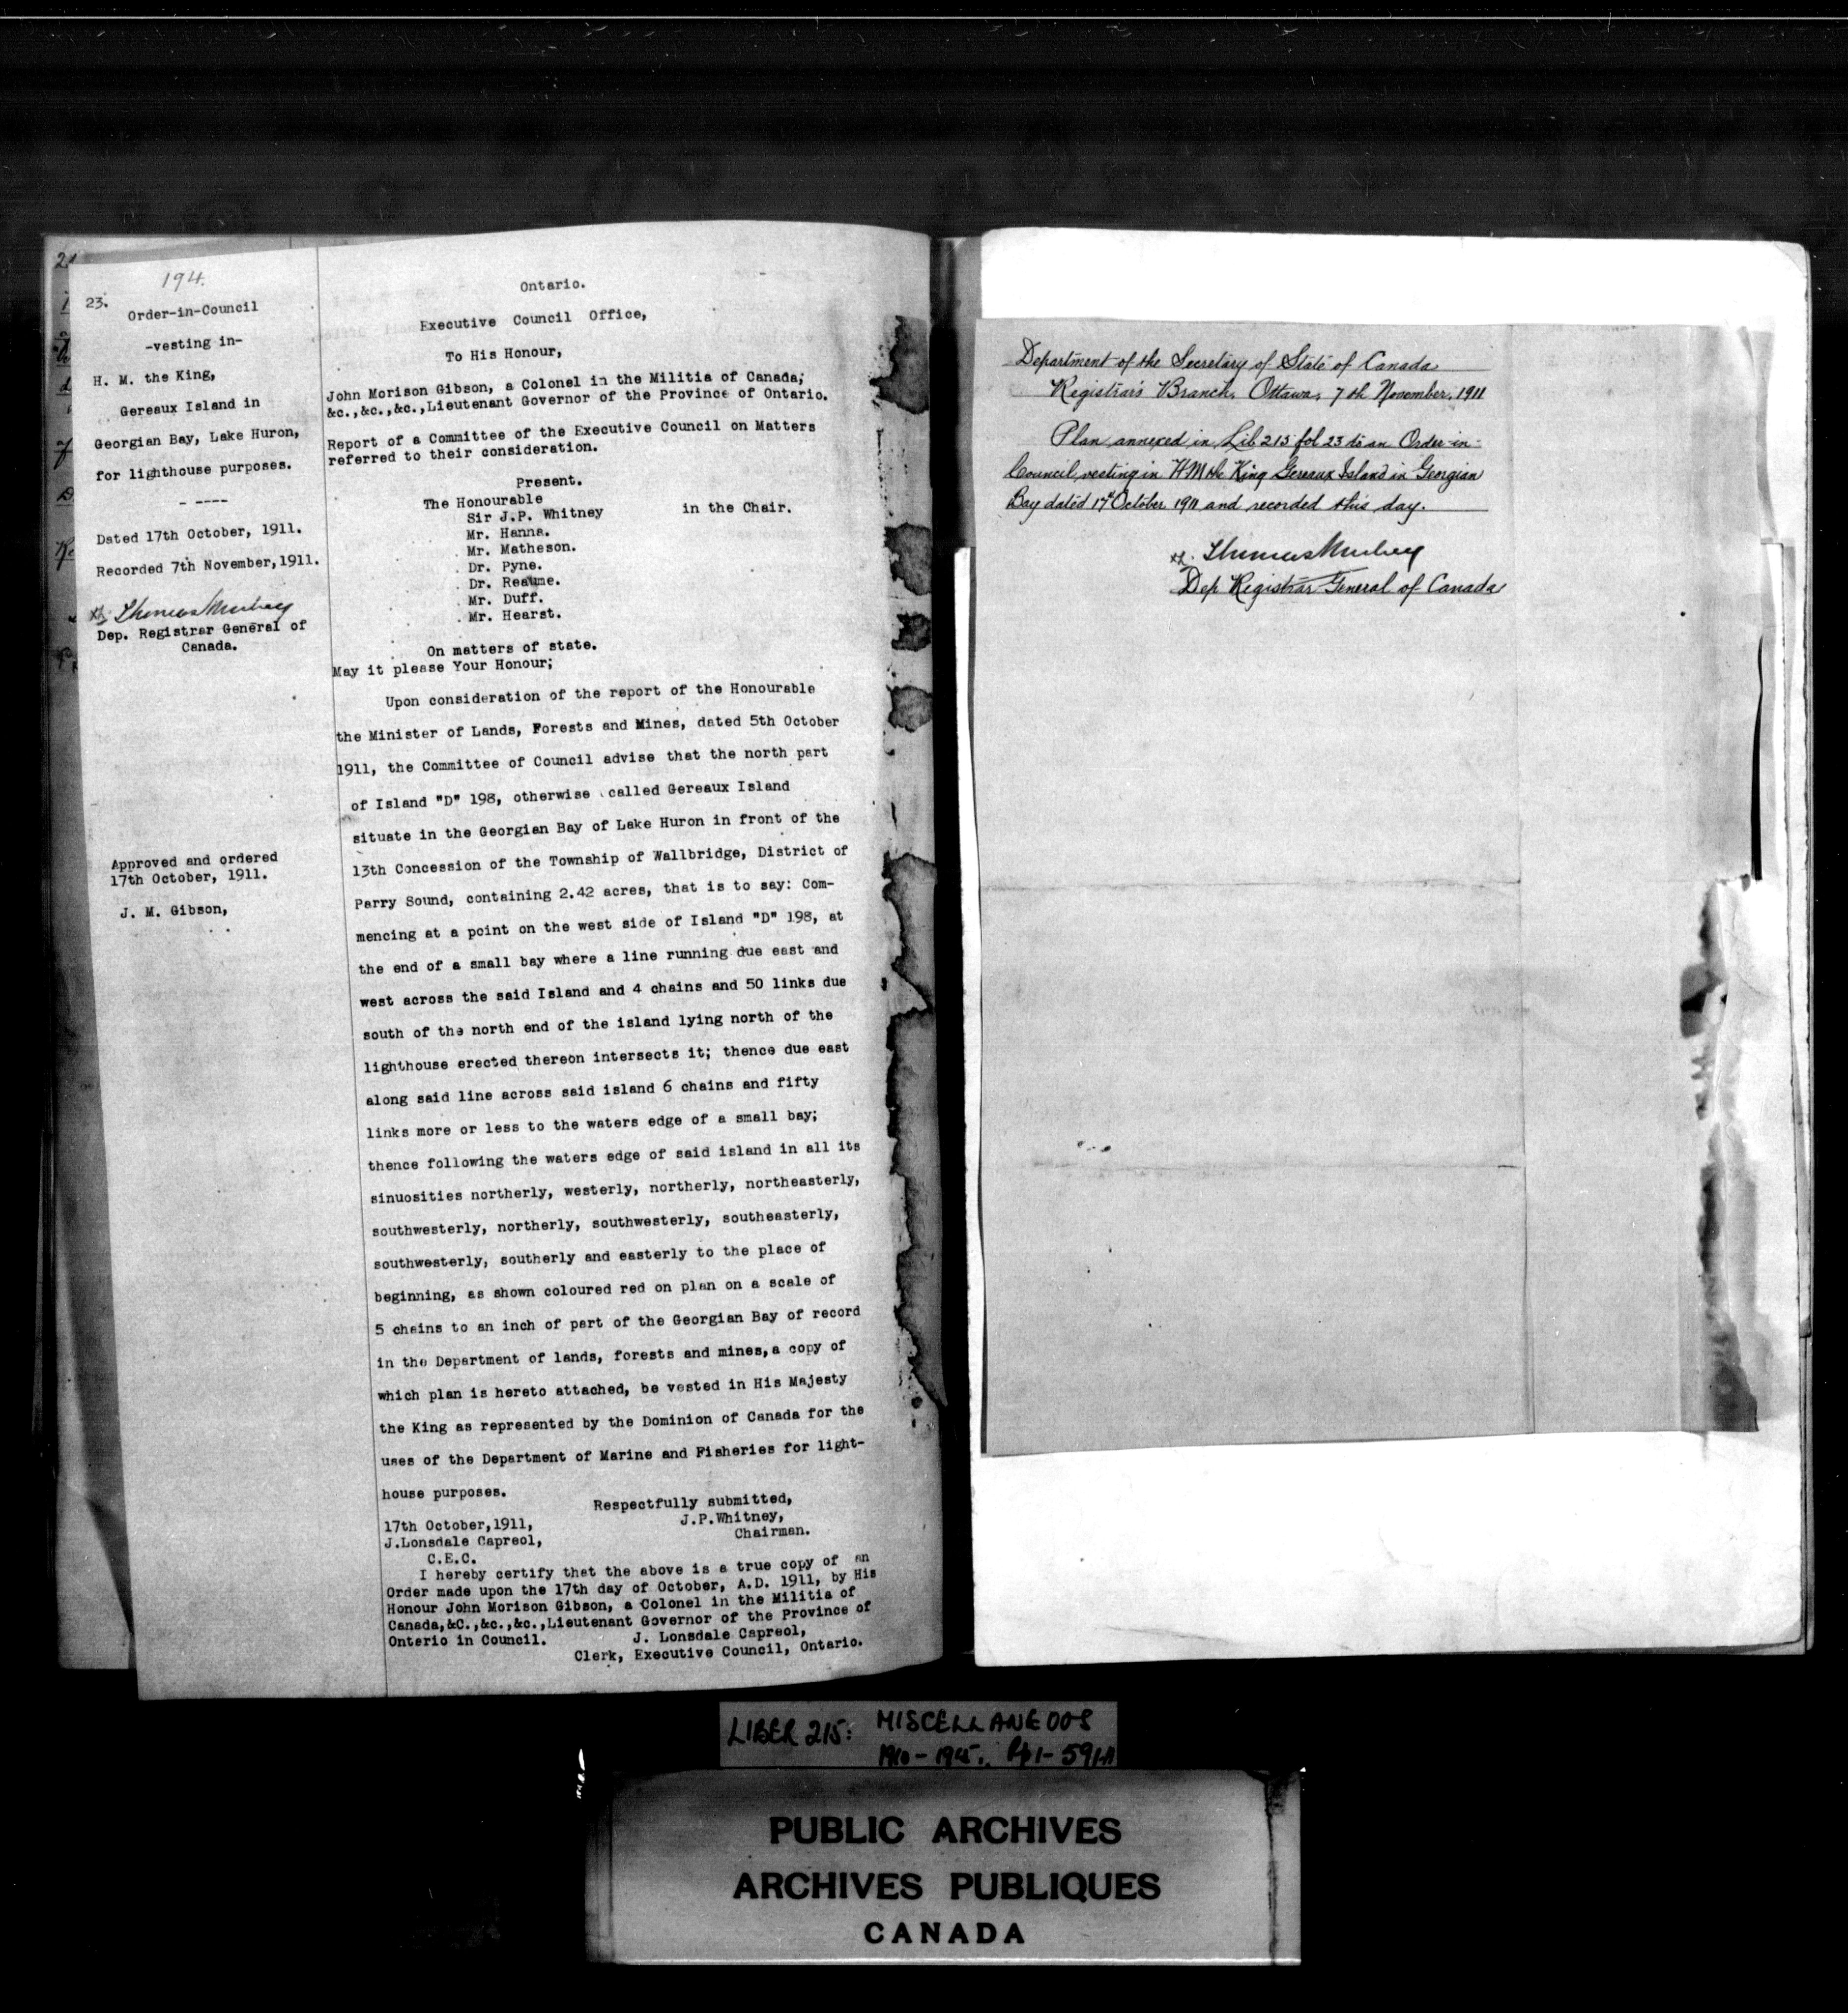 194.
23.
Order-in-Council
-vesting in-
H. M. the King,
Gereaux Island in
Georgian Bay, Lake Huron,
for lighthouse purposes.
- ----
Dated 17th October, 1911.
Recorded 7th November,1911.
Thomas Mulvey
Dep. Registrar General of
Canada.
Approved and ordered
17th October, 1911.
J. M. Gibson,
Ontario.
Executive Council Office,
To His Honour,
John Morison Gibson, a Colonel in the Militia of Canada;
&c.,&c.,&c.,Lieutenant Governor of the Province of Ontario.
Report of a Committee of the Executive Council on Matters
referred to their consideration.
Present.
The Honourable
Sir J.P. Whitney in the Chair.
Mr. Hanna.
Mr. Matheson.
Dr. Pyne.
Dr. Reaume.
Mr. Duff.
Mr. Hearst.
On matters of state.
May it please Your Honour;
Upon consideration of the report of the Honourable
the Minister of Lands, Forests and Mines, dated 5th October
1911, the Committee of Council advise that the north part
of Island "D" 198, otherwise called Gereaux Island
situate in the Georgian Bay of Lake Huron in front of the
13th Concession of the Township of Wallbridge, District of
Parry Sound, containing 2.42 acres, that is to say: Com-
mencing at a point on the west side of Island "D" 198, at
the end of a small bay where a line running due east and
west across the said Island and 4 chains and 50 links due
south of the north end of the island lying north of the
lighthouse erected thereon intersects it; thence due east
along said line across said island 6 chains and fifty
links more or less to the waters edge of a small bay;
thence following the waters edge of said island in all its
sinuosities northerly, westerly, northerly, northeasterly,
southwesterly, northerly, southwesterly, southeasterly,
southwesterly, southerly and easterly to the place of
beginning, as shown coloured red on plan on a scale of
5 chains to an inch of part of the Georgian Bay of record
in the Department of lands, forests and mines, a copy of
which plan is hereto attached, be vested in His Majesty
the King as represented by the Dominion of Canada for the
uses of the Department of Marine and Fisheries for light-
house purposes.
Respectfully submitted,
J.P.Whitney,
Chairman.
17th October,1911,
J.Lonsdale Capreol,
C.E.C.
I hereby certify that the above is a true copy of an
Order made upon the 17th day of October, A.D. 1911, by His
Honour John Morison Gibson, a Colonel in the Militia of
Canada,&C.,&c.,&c.,Lieutenant Governor of the Province of
Ontario in Council.
J. Lonsdale Capreol,
Clerk, Executive Council, Ontario.
Department of the Secretary of State of Canada
Registrar's Branch, Ottawa, 7th November, 1911
Plan annexed in Lib 215 fol 23 to an Order-in-
Council vesting in H M the King Gereaux Island in Georgian
Bay dated 17th October 1911 and recorded this day.
Thomas Mulvey
Dep Registrar General of Canada
LIBER 215: MISCELLANEOUS
1910-1945. Pp 1-591A
PUBLIC ARCHIVES
ARCHIVES PUBLIQUES
CANADA